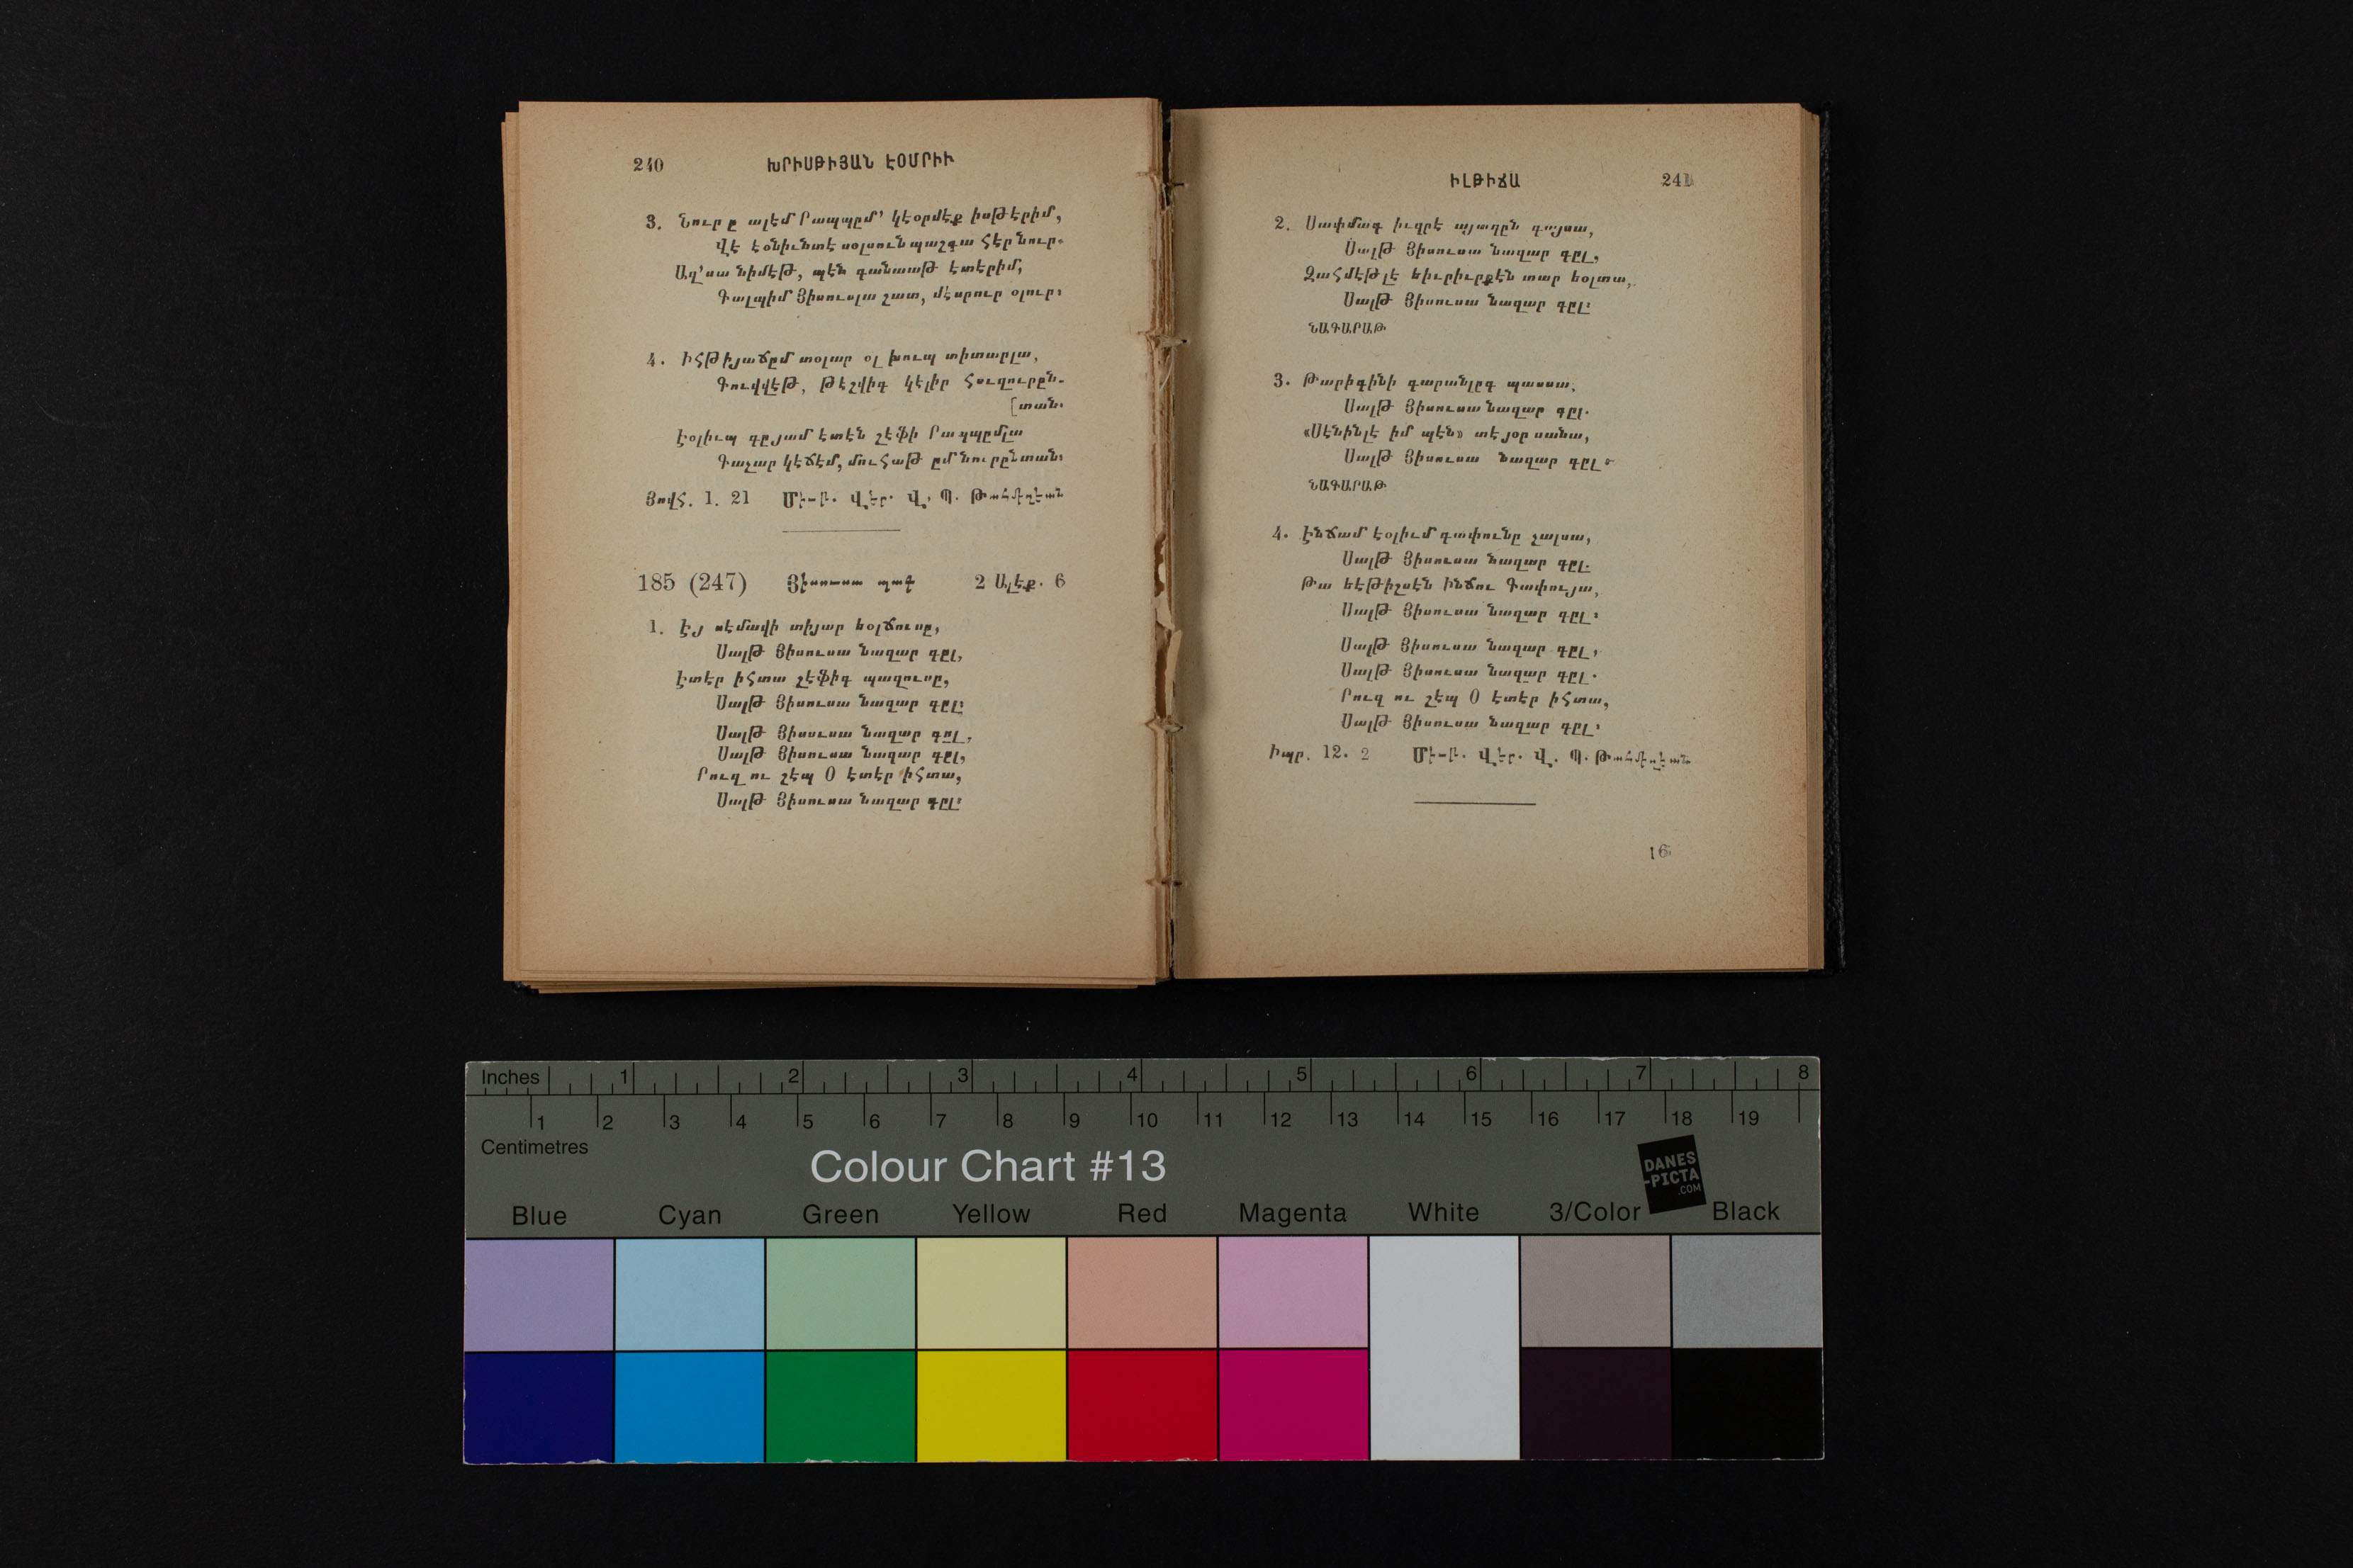 240 ԽՐԻՍԹԻՅԱՆ ԷՕՄՐԻՒ
3. Նուր ը ալէմ Րապպըմ՚ կէօրմէք իսթէրիմ,
Վէ էօնիւնտէ սօլսուն պաշգա հէր նուր.
Աղ՚սա նիմէթ, պէն գանաաթ էտէրիմ,
Գալպիմ Յիսուսլա շատ, մէսրուր օլուր։
4. Իհթիյաճըմ տօլար օլ խուպ տիտարլա,
Գուվվէթ, թէշվիգ կէլիր հուզուրըն-
[տան.
Էօլիւպ գըյամ էտէն շէֆի Րապպըմլա
Գաչար կէճէմ, մուհաթ ըմ նուրընտան։
Յովհ. 1. 21 Մէ-թ. Վէր. Վ. Պ. Թահմիզէան
185 (247) Յիսուսա պագ 2 Ալէք. 6
1. Էյ սէմավի տիյար եօլճուսը,
Սալթ Յիսուսա նազար գըլ,
Էտէր իհտա շէֆիգ պազուսը,
Սալթ Յիսուսա նազար գըլ։
Սալթ Յիսուսա նազար գըլ,
Սալթ Յիսուսա նազար գըլ,
Րուզ ու շէպ Օ էտէր իհտա,
Սալթ Յիսուսա նազար գըլ։
ԻԼԹԻՃԱ 241
2. Սափմագ իւզրէ այաղըն գոյսա,
Սալթ Յիսուսա նազար գըլ,
Զահմէթլէ եիւրիւրքէն տար եօլտա,
Սալթ Յիսուսա նազար գըլ։
ՆԱԳԱՐԱԹ
3. Թարիգինի գարանլըգ պասսա,
Սալթ Յիսուսա նազար գըլ.
«Սէնինլէ իմ պէն» տէյօր սանա,
Սալթ Յիսուսա նազար գըլ։
ՆԱԳԱՐԱԹ
4. Էնճամ էօլիւմ գափունը չալսա,
Սալթ Յիսուսա նազար գըլ.
Թա եէթիշսէն Ինճու Գափույա,
Սալթ Յիսուսա նազար գըլ։
Սալթ Յիսուսա նազար գըլ,
Սալթ Յիսուսա նազար գըլ.
Րուզ ու շէպ Օ էտէր իհտա,
Սալթ Յիսուսա նազար գըլ։
Իպր. 12. 2 Մէ-թ. Վէր. Վ. Պ. Թահմիզէան
16
Inches 1 2 3 4 5 6 7 8
1 2 3 4 5 6 7 8 9 10 11 12 13 14 15 16 17 18 19
Centimetres
Colour Chart #13
DANES
-PICTA
.COM
Blue Cyan Green Yellow Red Magenta White 3/Color Black